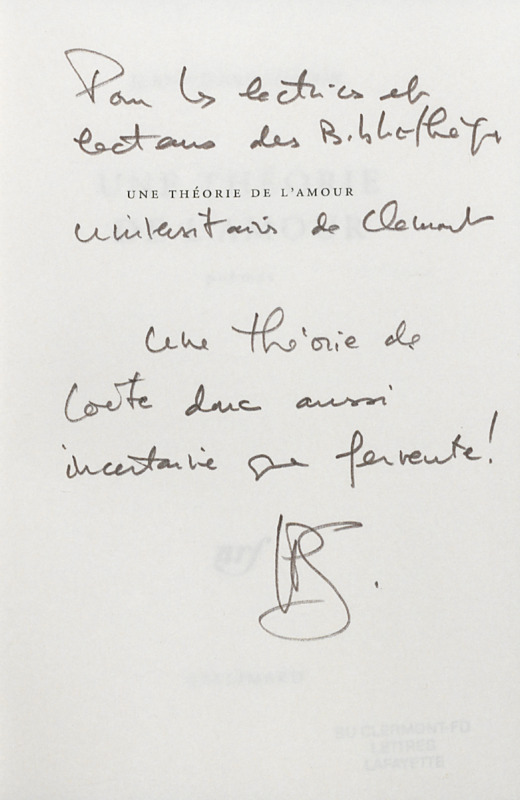 Pour les lectrices et
lecteurs des Bibliothèques
UNE THÉORIE DE L'AMOUR
universitaires de Clermont
une théorie de
poète donc aussi
incertaine que fervente !
UNE THÉORIE
DE L'AMOUR
nrf
GALLIMARD
BU CLERMONT-FD
LETTRES
LAFAYETTE